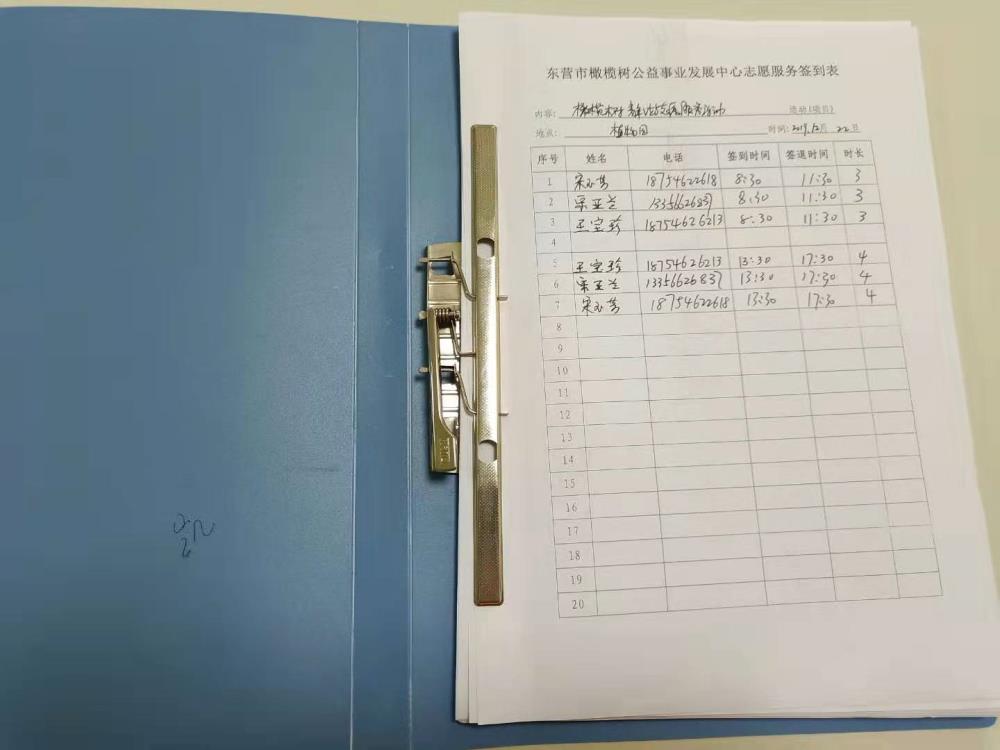 东营市橄榄树公益事业发展中心志愿服务签到表
内容: 橄榄树 活动(项目)
地点: 植物园 时间: 2019年12月22日
序号 姓名 电话 签到时间 签退时间 时长
1 宋玉芳 18754622618 8:30 11:30 3
2 宋亚兰 13356626837 8:30 11:30 3
3 王宝珍 18754626213 8:30 11:30 3
4
5 王宝珍 18754626213 13:30 17:30 4
6 宋亚兰 13356626837 13:30 17:30 4
7 宋玉芳 18754622618 13:30 17:30 4
8
9
10
11
12
13
14
15
16
17
18
19
20